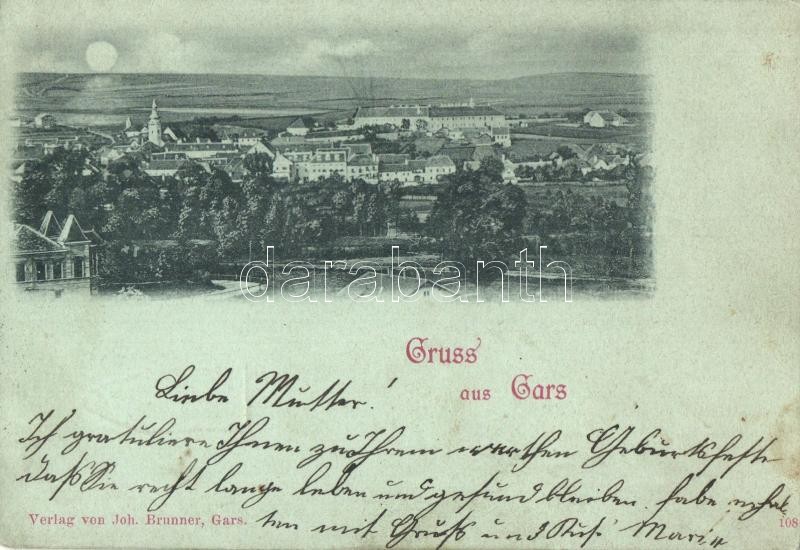 darabanth.com
Gruss
aus Gars
Liebe Mutter!
Ich gratuliere Ihnen zu Ihrem werthen Geburtsfeste
daß Sie recht lange leben und gesund bleiben. habe erhal-
ten mit Gruß und Kuß Marie
Verlag von Joh. Brunner, Gars.
108